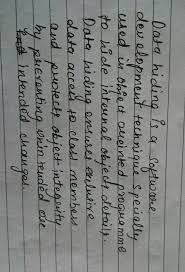 Data hiding is a software
development technique specially
used in object oriented programme
to hide internal object details.
Data hiding ensures exclusive
data access to class members
and protects object integrity
by preventing unintended or
intended changes.